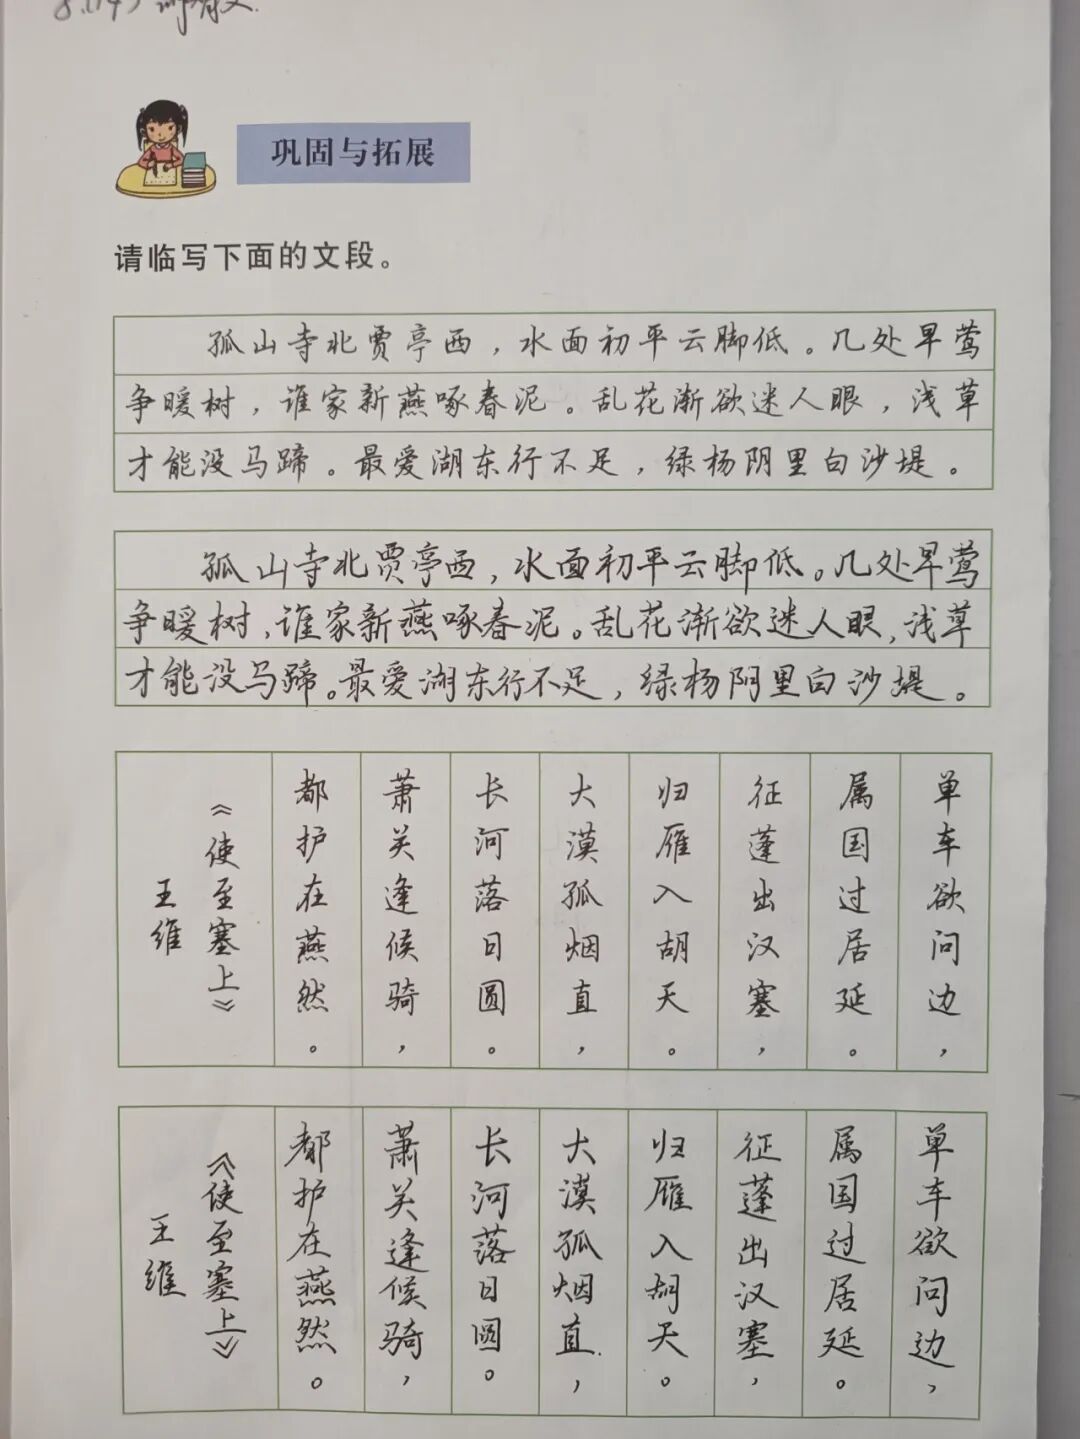 巩固与拓展
请临写下面的文段。
孤山寺北贾亭西，水面初平云脚低。几处早莺
争暖树，谁家新燕啄春泥。乱花渐欲迷人眼，浅草
才能没马蹄。最爱湖东行不足，绿杨阴里白沙堤。
孤山寺北贾亭西，水面初平云脚低。几处早莺
争暖树，谁家新燕啄春泥。乱花渐欲迷人眼，浅草
才能没马蹄。最爱湖东行不足，绿杨阴里白沙堤。
单车欲问边，
属国过居延。
征蓬出汉塞，
归雁入胡天。
大漠孤烟直，
长河落日圆。
萧关逢候骑，
都护在燕然。
《使至塞上》
王维
单车欲问边，
属国过居延。
征蓬出汉塞，
归雁入胡天。
大漠孤烟直，
长河落日圆。
萧关逢候骑，
都护在燕然。
《使至塞上》
王维